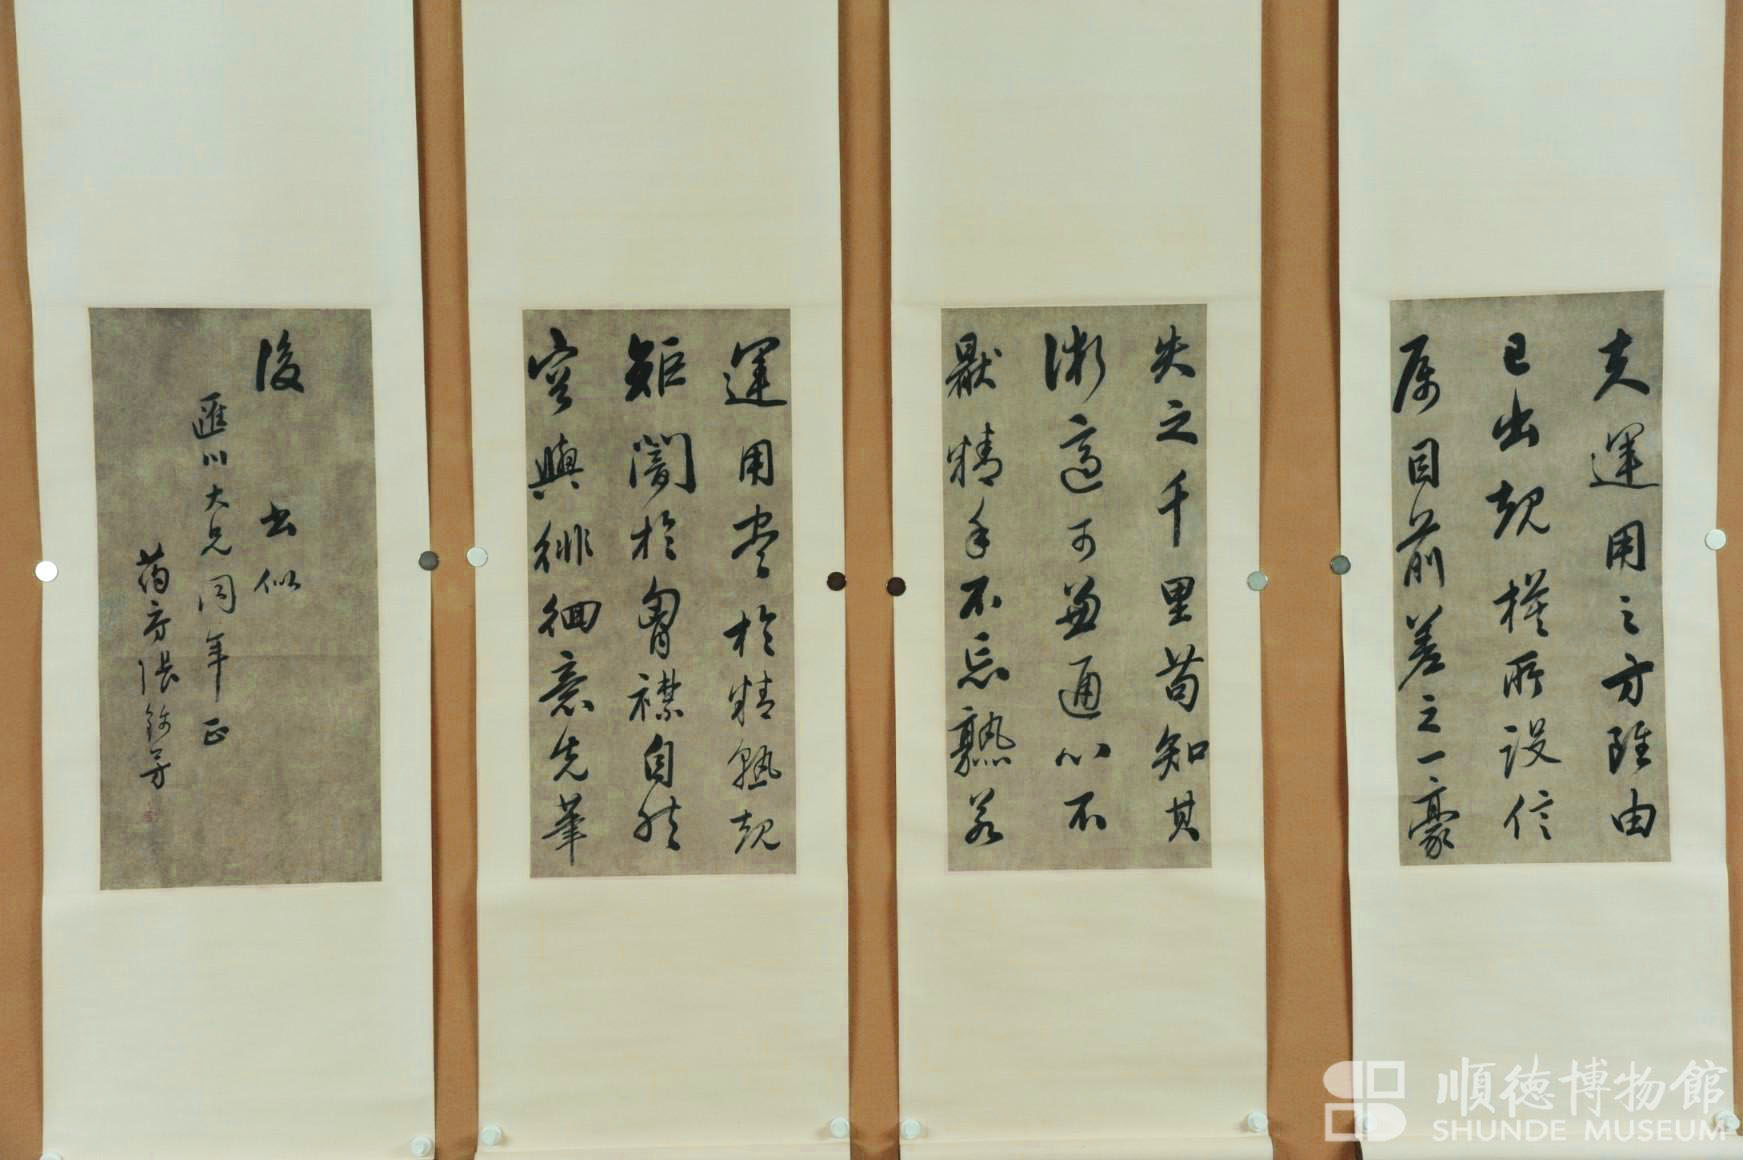 夫運用之方雖由
已出規模所設信
属目前差之一豪
失之千里苟知其
術適可兼通心不
猒精手不忘熟若
運用盡於精熟規
矩闇於胷襟自然
容與徘徊意先筆
後 書似
匯川大兄同年正
葯房張錦芳
順德博物館
SHUNDE MUSEUM